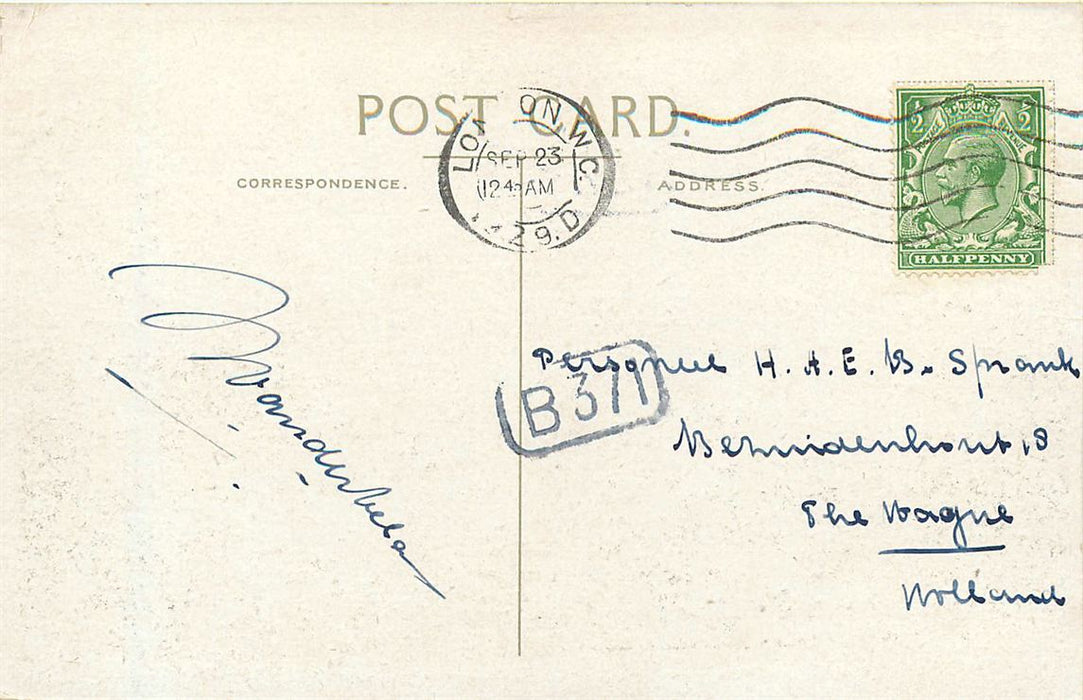 POST CARD.
CORRESPONDENCE.
ADDRESS.
LONDON.W.C.
SEP 23
1245AM
1929.D
1/2 1/2
POSTAGE REVENUE
HALFPENNY
B 371
Personeel H. A. E. B. Spronk
Bezuidenhout 18
The Hague
Holland